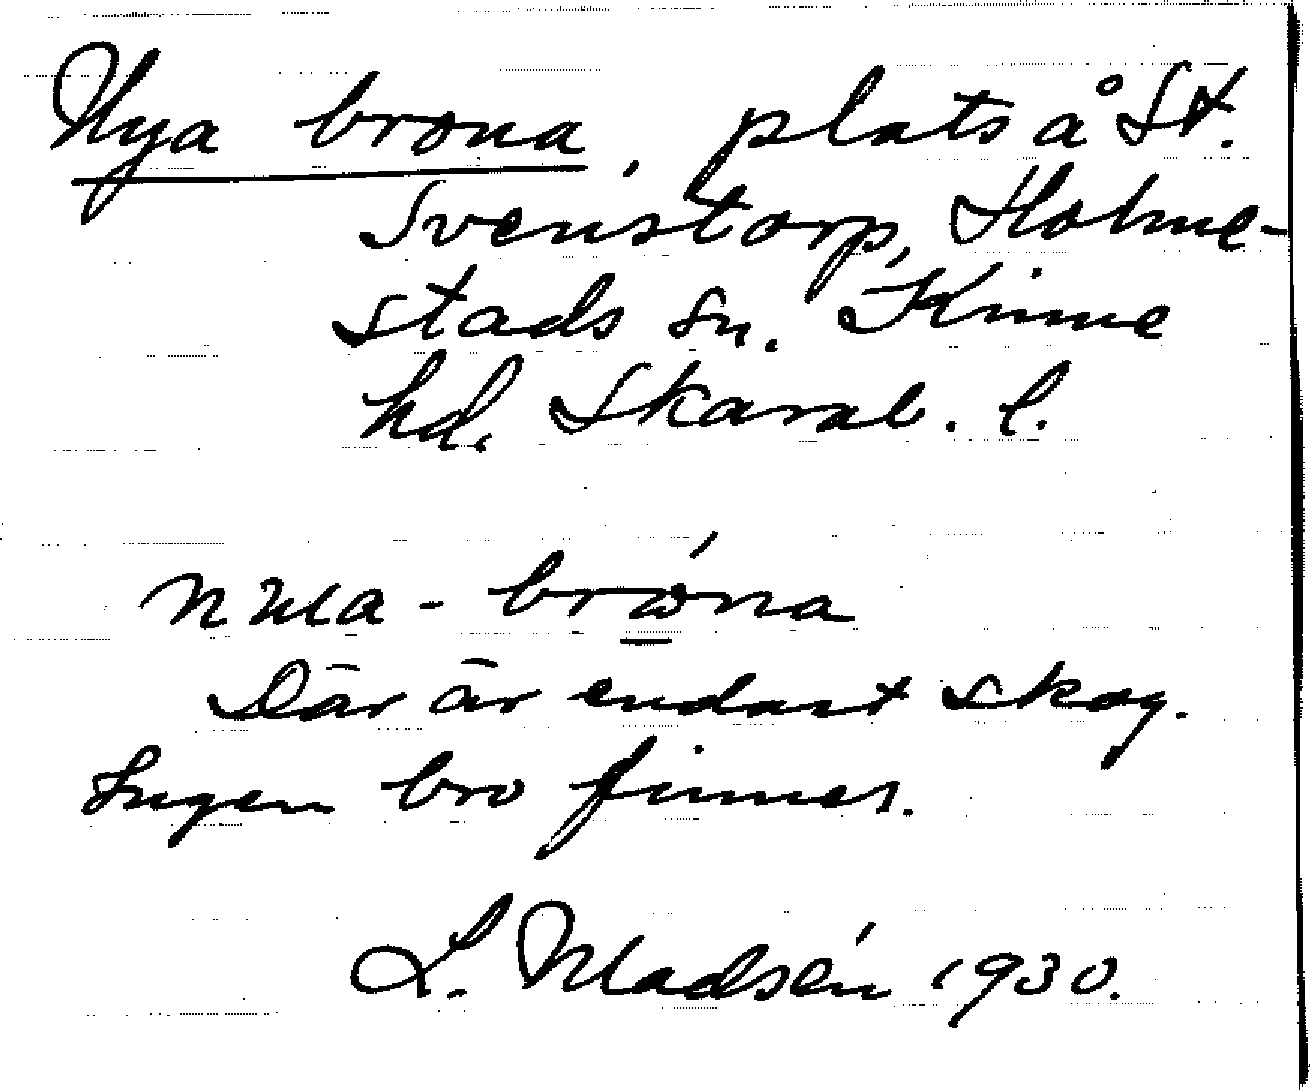 Nya brona, plats å St.
Svenstorp, Holme-
stads sn. Kinne
hd. Skarab. l.
nua - bróna
Där är endast skog.
Ingen bro finnes.
L. Madsén 1930.